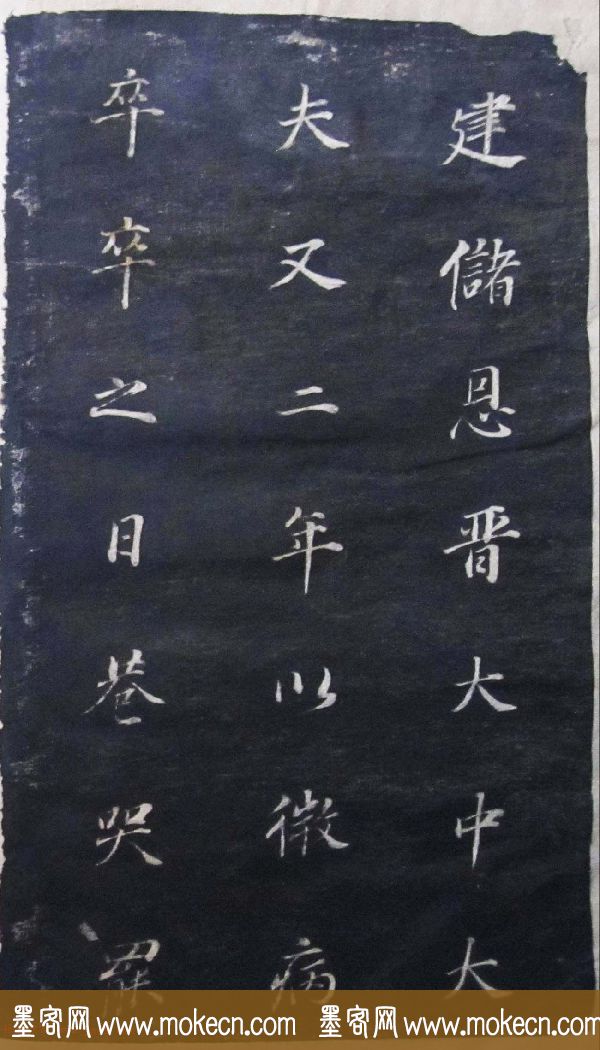 建儲恩晋大中大
夫又二年以微病
卒卒之日巷哭
墨客网 www.mokecn.com 墨客网 www.mokecn.com